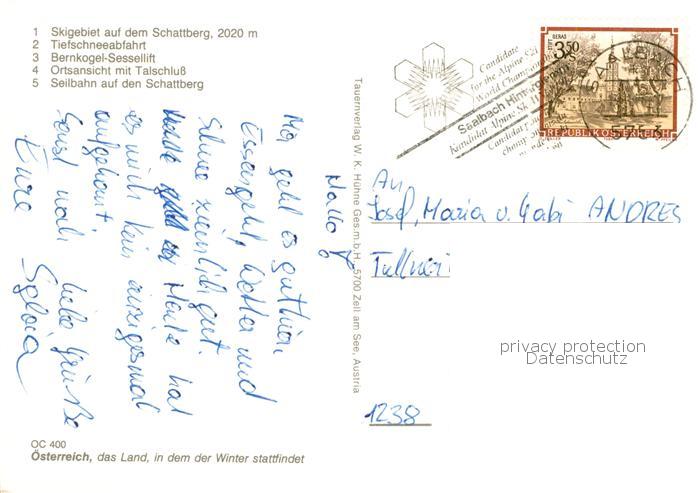 1 Skigebiet auf dem Schattberg, 2020 m
2 Tiefschneeabfahrt
3 Bernkogel-Sessellift
4 Ortsansicht mit Talschluß
5 Seilbahn auf den Schattberg
Hallo
Mir geht es gut hier,
Essen geht, Wetter und
Schnee ziemlich gut.
Heute hat
es mich kein einzigesmal
aufgehaut.
Sonst noch
liebe Grüße
Eure Sylvia
Tauernverlag W. K. Hühne Ges.m.b.H., 5700 Zell am See, Austria
Candidate
for the Alpine Ski
World Championships
Saalbach Hinterglemm
Kandidat Alpine Sk
STIFT GERAS
3.50
S
REPUBLIK ÖSTERREICH
SAALBACH
5753
An
Josef, Maria u. Gabi ANDRES
1238
privacy protection
Datenschutz
OC 400
Österreich, das Land, in dem der Winter stattfindet